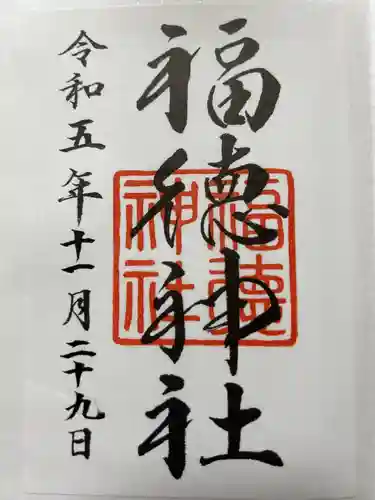 福徳神社
令和五年十一月二十九日
福徳
神社